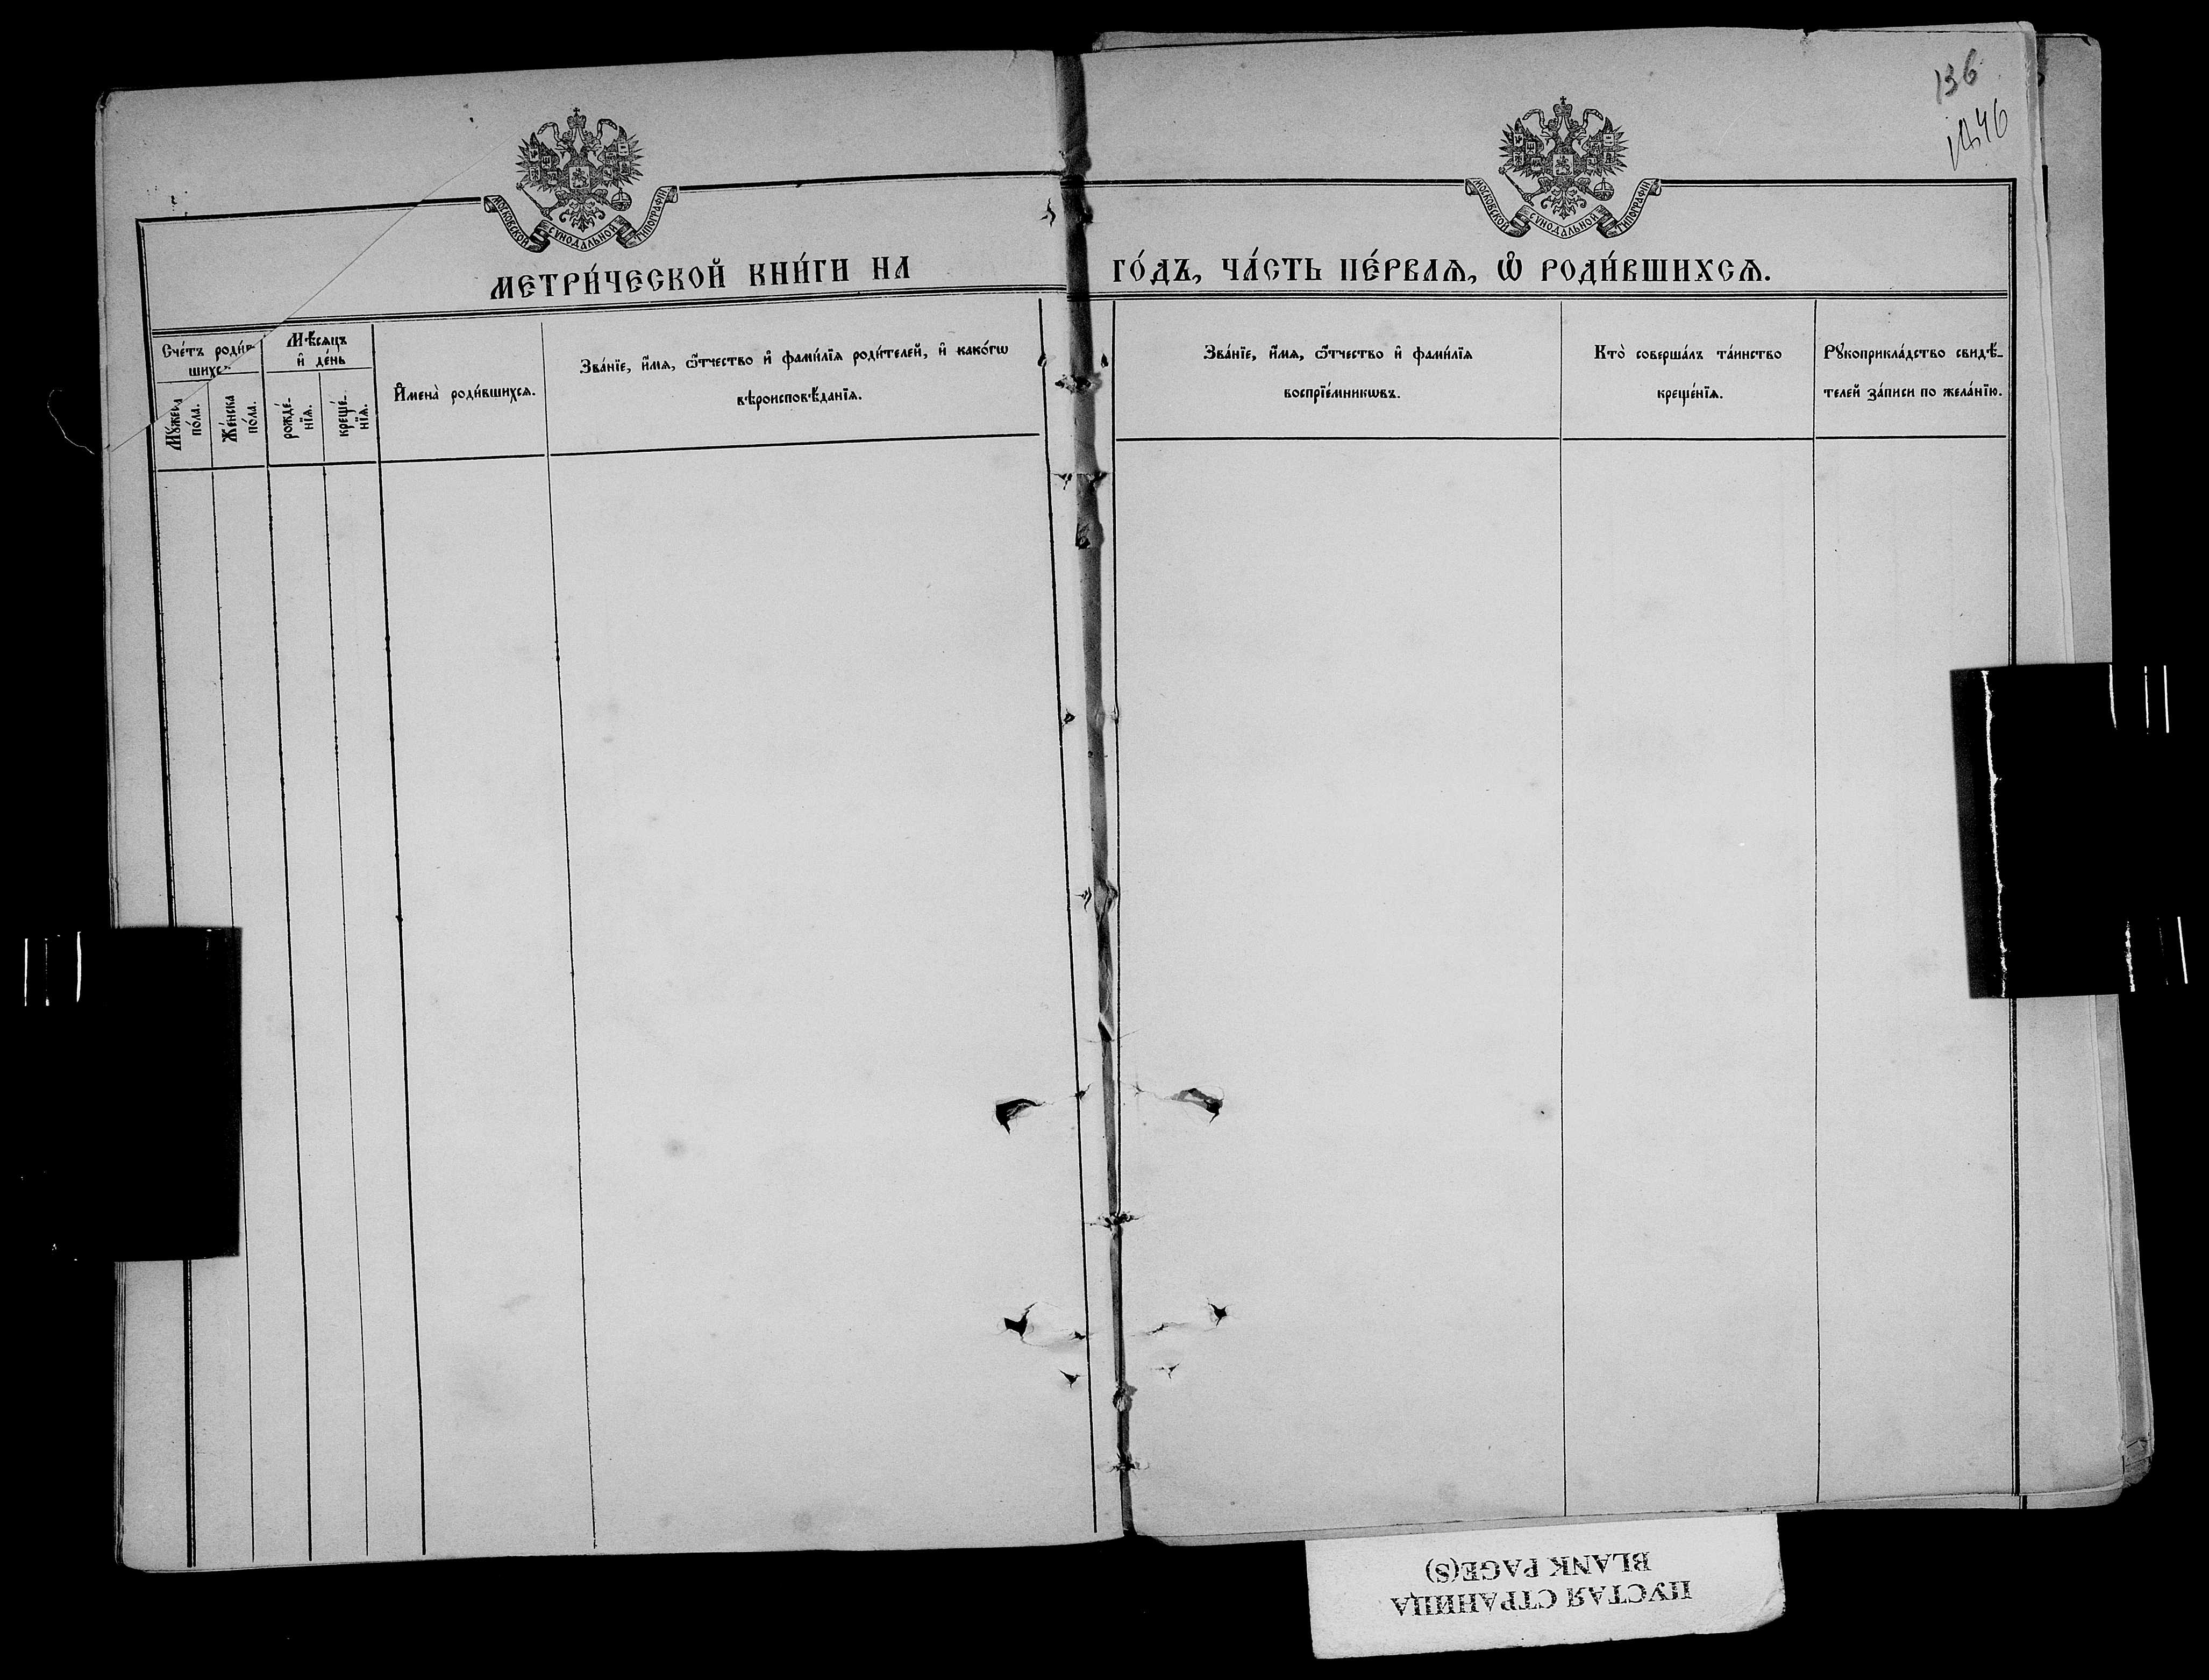 136
МОСКОВСКОЙ СѴНОДАЛЬНОЙ ТИПОГРАФІИ
МОСКОВСКОЙ СѴНОДАЛЬНОЙ ТИПОГРАФІИ
МЕТРИ́ЧЕСКОЙ КНИ́ГИ НА
ГО́ДЪ, ЧА́СТЬ ПЕ́РВАѦ, Ѡ҆ РОДИ́ВШИХСѦ.
Сче́тъ роди́в-
шихсѧ
Мѣ́сѧцъ
и҆ де́нь
Мꙋ́жеска
по́ла.
Же́нска
по́ла.
рожде́-
нїѧ.
креще́-
нїѧ.
И҆мена̀ роди́вшихсѧ.
Зва́нїе, и҆́мѧ, ѻ҆́тчество и҆ фами́лїѧ роди́телей, и҆ како́гѡ
вѣроисповѣ́данїѧ.
Зва́нїе, и҆́мѧ, ѻ҆́тчество и҆ фами́лїѧ
воспрїе́мникѡвъ.
Кто̀ соверша́лъ та́инство
креще́нїѧ.
Рꙋкоприкла́дство свидѣ́-
телей за́писи по жела́нїю.
ПУСТАЯ СТРАНИЦА
BLANK PAGE(S)